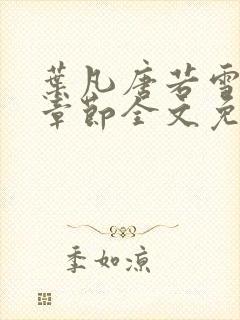 葉凡唐若雪
章節全文免
季如涼